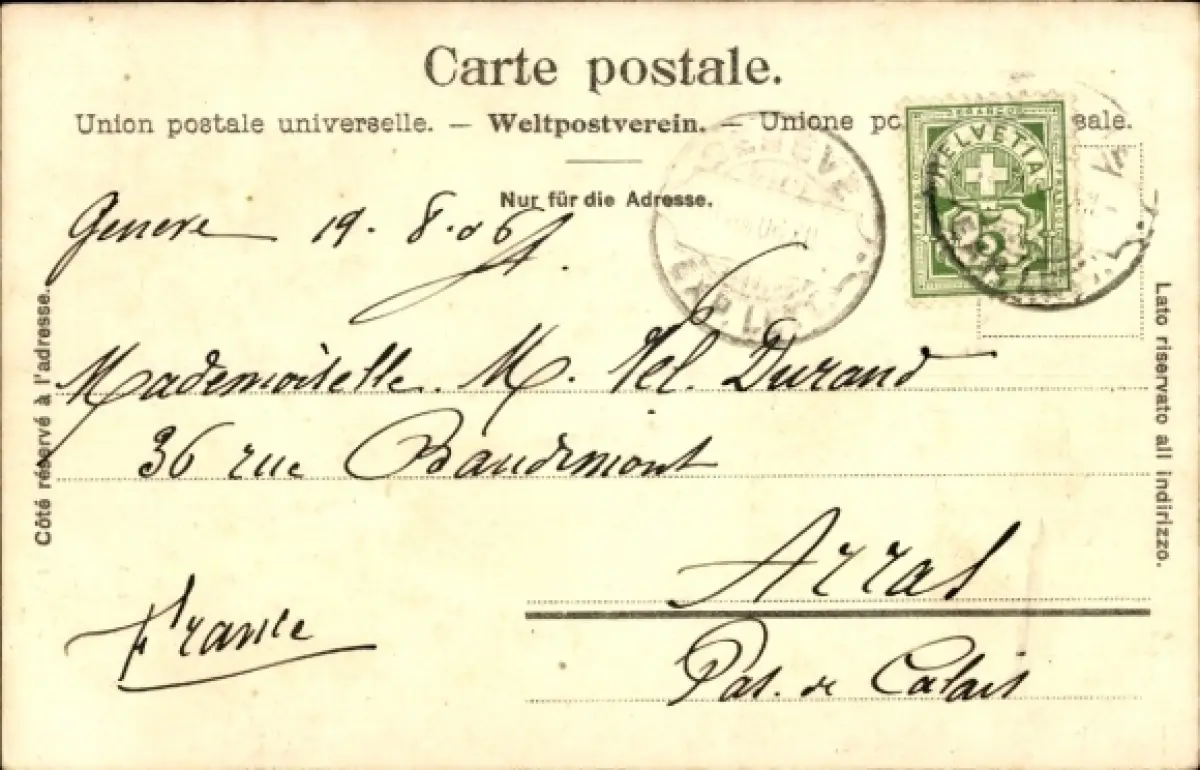 Carte postale.
Union postale universelle. — Weltpostverein. — Unione po sale.
Nur für die Adresse.
Geneve 19. 8. 06
Mademoiselle. M. Durand
36 rue Baudimont
Arras
France
Pas. de Calais
Côté réservé à l'adresse.
Lato riservato all indirizzo.
GENEVE
EXP. LETT.
FRANCO
HELVETIA
5